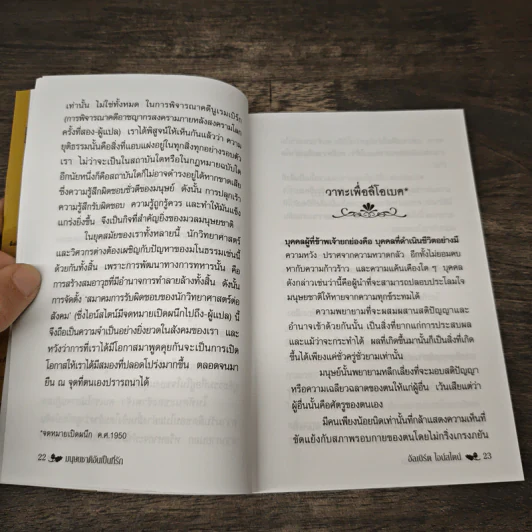 เท่านั้น ไม่ใช่ทั้งหมด ในการพิจารณาคดีนูเรมเบิร์ก
(การพิจารณาคดีอาชญากรสงครามภายหลังสงครามโลก
ครั้งที่สอง-ผู้แปล) เราได้พิสูจน์ให้เห็นกันแล้วว่า ความ
ยุติธรรมนั้นคือสิ่งที่แอบแฝงอยู่ในทุกสิ่งทุกอย่างรอบตัว
เรา ไม่ว่าจะเป็นในสถาบันใดหรือในกฎหมายฉบับใด
อีกนัยหนึ่งก็คือสถาบันใดก็ไม่อาจดำรงอยู่ได้หากขาดเสีย
ซึ่งความรู้สึกผิดชอบชั่วดีของมนุษย์ ดังนั้น การปลุกเร้า
ความรู้สึกรับผิดชอบ ความรู้ถูกควร และทำให้มันแข็ง
แกร่งยิ่งขึ้น จึงเป็นกิจที่สำคัญยิ่งของมวลมนุษยชาติ
ในยุคสมัยของเราทั้งหลายนี้ นักวิทยาศาสตร์
และวิศวกรต่างต้องเผชิญกับปัญหาของมโนธรรมเช่นนี้
ด้วยกันทั้งสิ้น เพราะการพัฒนาทางการทหารนั้น คือ
การสร้างสมอาวุธที่มีอำนาจการทำลายล้างทั้งสิ้น ดังนั้น
การจัดตั้ง 'สมาคมการรับผิดชอบของนักวิทยาศาสตร์ต่อ
สังคม' (ซึ่งไอน์สไตน์มีจดหมายเปิดผนึกไปถึง-ผู้แปล) นี้
จึงถือเป็นความจำเป็นอย่างยิ่งยวดในสังคมของเรา และ
หวังว่าการที่เราได้มีโอกาสมาพูดคุยกันจะเป็นการเปิด
โอกาสให้เราได้มีสมองที่ปลอดโปร่งมากขึ้น ตลอดจนมา
ยืน ณ จุดที่ตนเองปรารถนาได้
*จดหมายเปิดผนึก ค.ศ.1950
22 มนุษยชาติอันเป็นที่รัก
วาทะเพื่อลีโอเบค*
บุคคลผู้ที่ข้าพเจ้ายกย่องคือ บุคคลที่ดำเนินชีวิตอย่างมี
ความหวัง ปราศจากความหวาดกลัว อีกทั้งไม่ยอมคบ
หากับความก้าวร้าว และความแค้นเคืองใด ๆ บุคคล
ดังกล่าวเช่นว่านี้คือผู้นำที่จะสามารถปลอบประโลมใจ
มนุษยชาติให้หายจากความทุกข์ระทมได้
ความพยายามที่จะผสมผสานสติปัญญาและ
อำนาจเข้าด้วยกันนั้น เป็นสิ่งที่ยากแก่การประสบผล
และแม้ว่าจะกระทำได้ ผลที่เกิดขึ้นมานั้นก็เป็นสิ่งที่เกิด
ขึ้นได้เพียงแค่ชั่วครู่ชั่วยามเท่านั้น
มนุษย์นั้นพยายามหลีกเลี่ยงที่จะมอบสติปัญญา
หรือความเฉลียวฉลาดของตนให้แก่ผู้อื่น เว้นเสียแต่ว่า
ผู้อื่นนั้นคือศัตรูของตนเอง
มีคนเพียงน้อยนิดเท่านั้นที่กล้าแสดงความเห็นที่
ขัดแย้งกับสภาพรอบกายของตนโดยไม่กริ่งเกรงภยัน
อัลเบิร์ต ไอน์สไตน์ 23